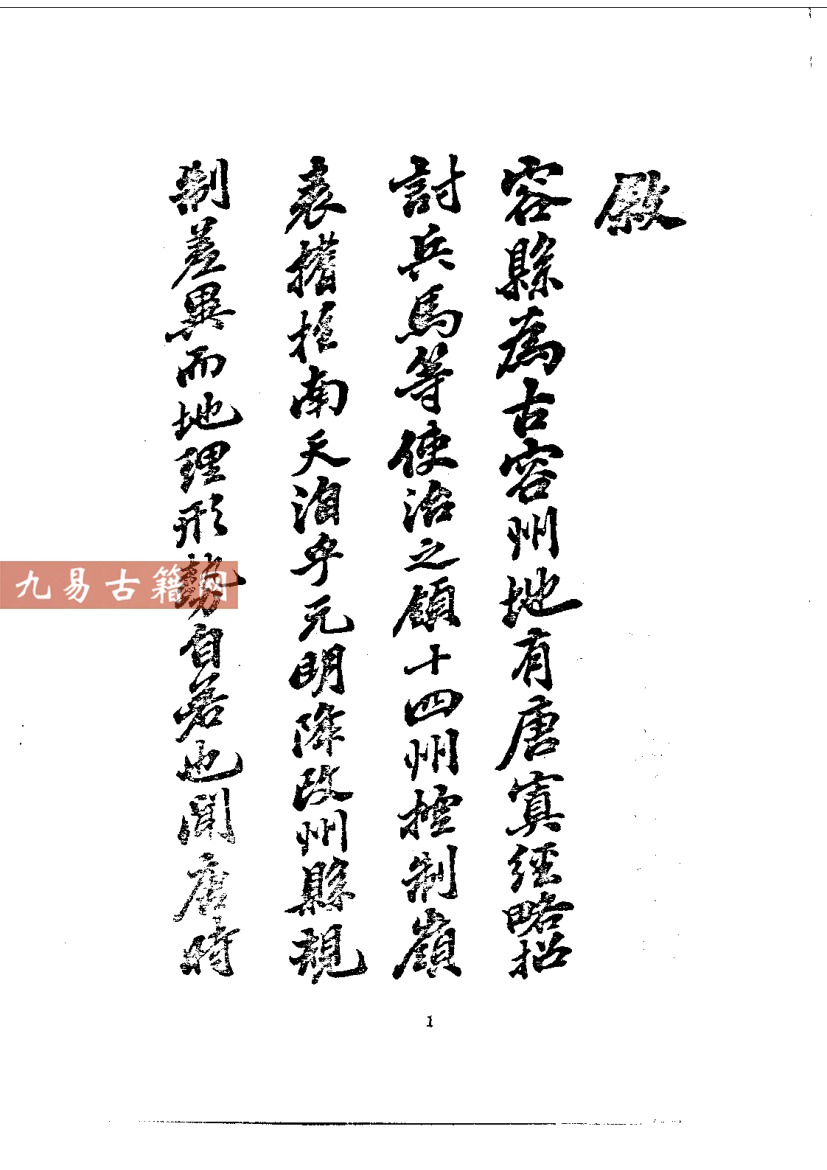 容縣為古容州地有唐寘經略招
討兵馬等使治之領十四州控制嶺
表搘拄南天洎乎元明降改州縣規
制差異而地理形勢自若也聞唐時
九易古籍网
1